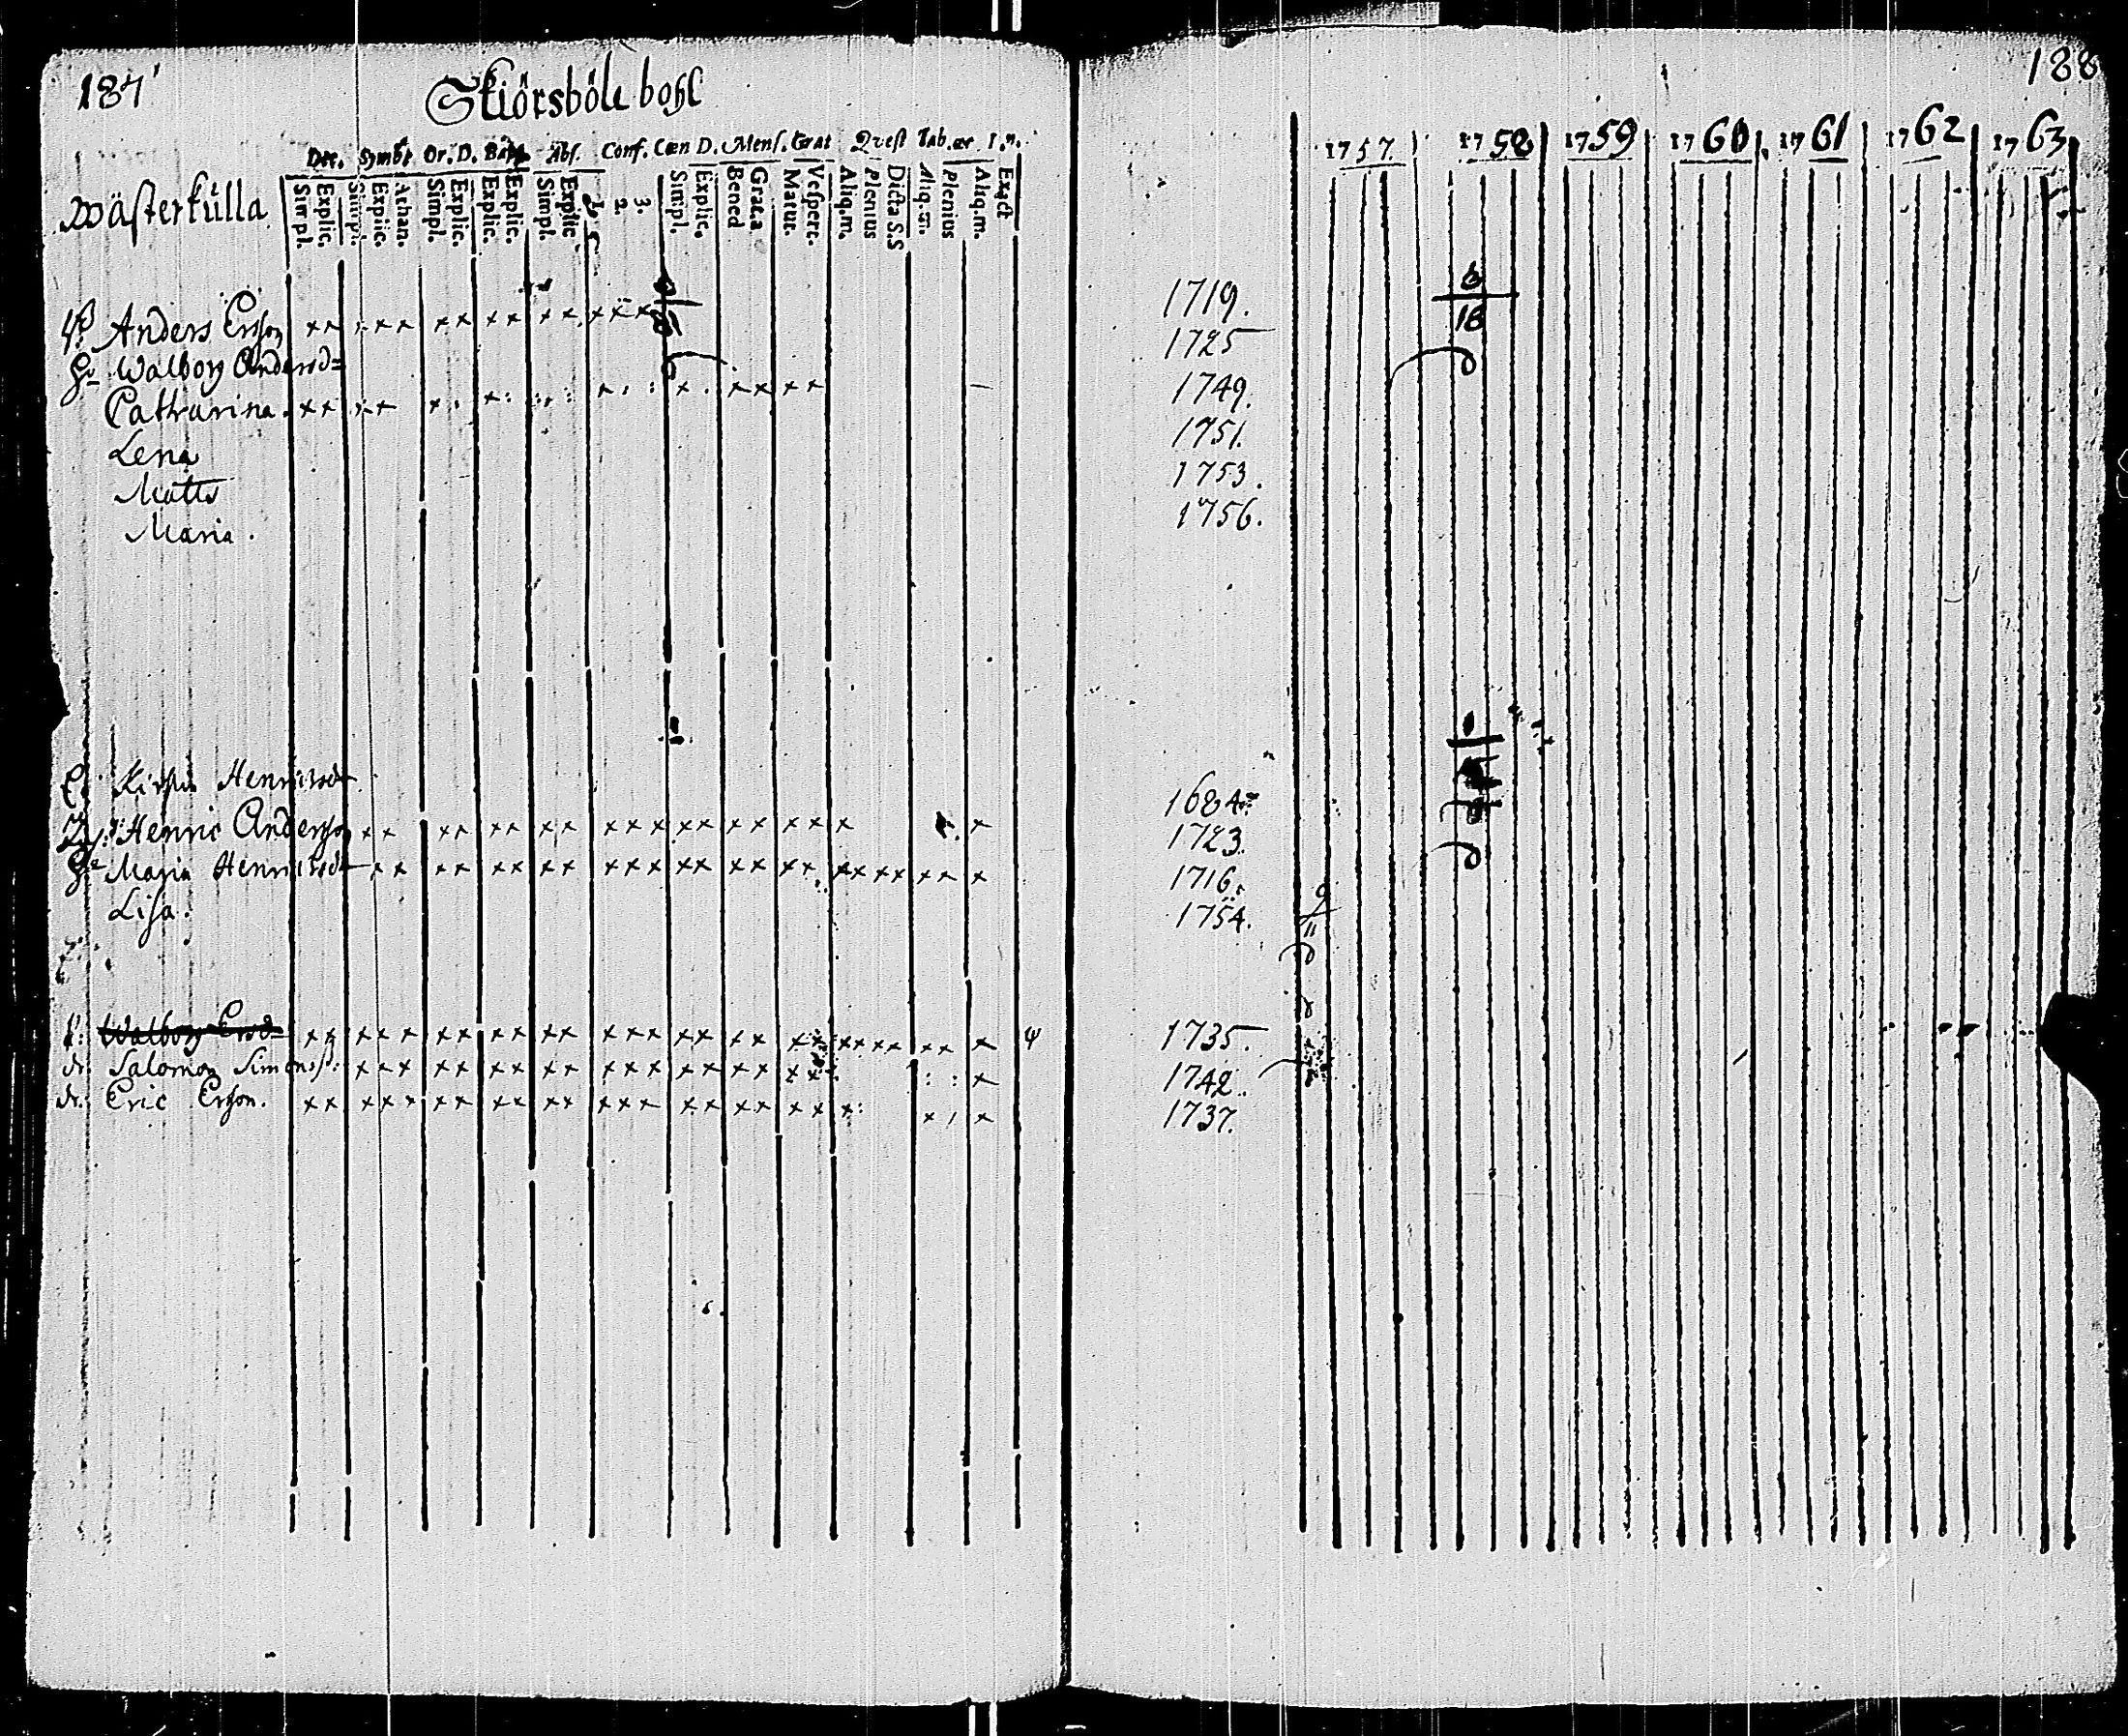 187
Skiörsböle bohl
Dec. Symbt Or. D. Bapt. Abs. Conf. Cœn D. Mens. Grat Qvest Tab. œr I. n.
Wästerkulla
Simpl. Explic. Simpl. Explic. Athan. Simpl. Explic. Explic. Explic. Simpl. Explic 1. 2. 3. Simpl. Explic. Bened Grat.a Matut. Vespert. Aliq.m. Plenius Dicta S.S Aliq.m. Plenius Aliq.m. Exact
Anders Ersson x x x x x x x x x x x x x x
Walborg Andersd=
Catharina. x x x x x x x x x x x x
Lena
Matts
Maria.
Kirstin Henricsd
Henric Andersson x x x x x x x x x x x x x x x x x x x x
Maria Henricsd x x x x x x x x x x x x x x x x x x x x x x x
Lisa.
Walborg Ersd x x x x x x x x x x x x x x x x x x x x x x x x x x x
dr. Salomon Simonss: x x x x x x x x x x x x x x x x x x x
dr. Eric Ersson. x x x x x x x x x x x x x x x x x x x x x x x
188
1757 1758 1759 1760 1761 1762 1763
1719. 6 18
1725
1749.
1751.
1753.
1756.
1684
1723.
1716.
1754. 9 11
1735.
1742.
1737.